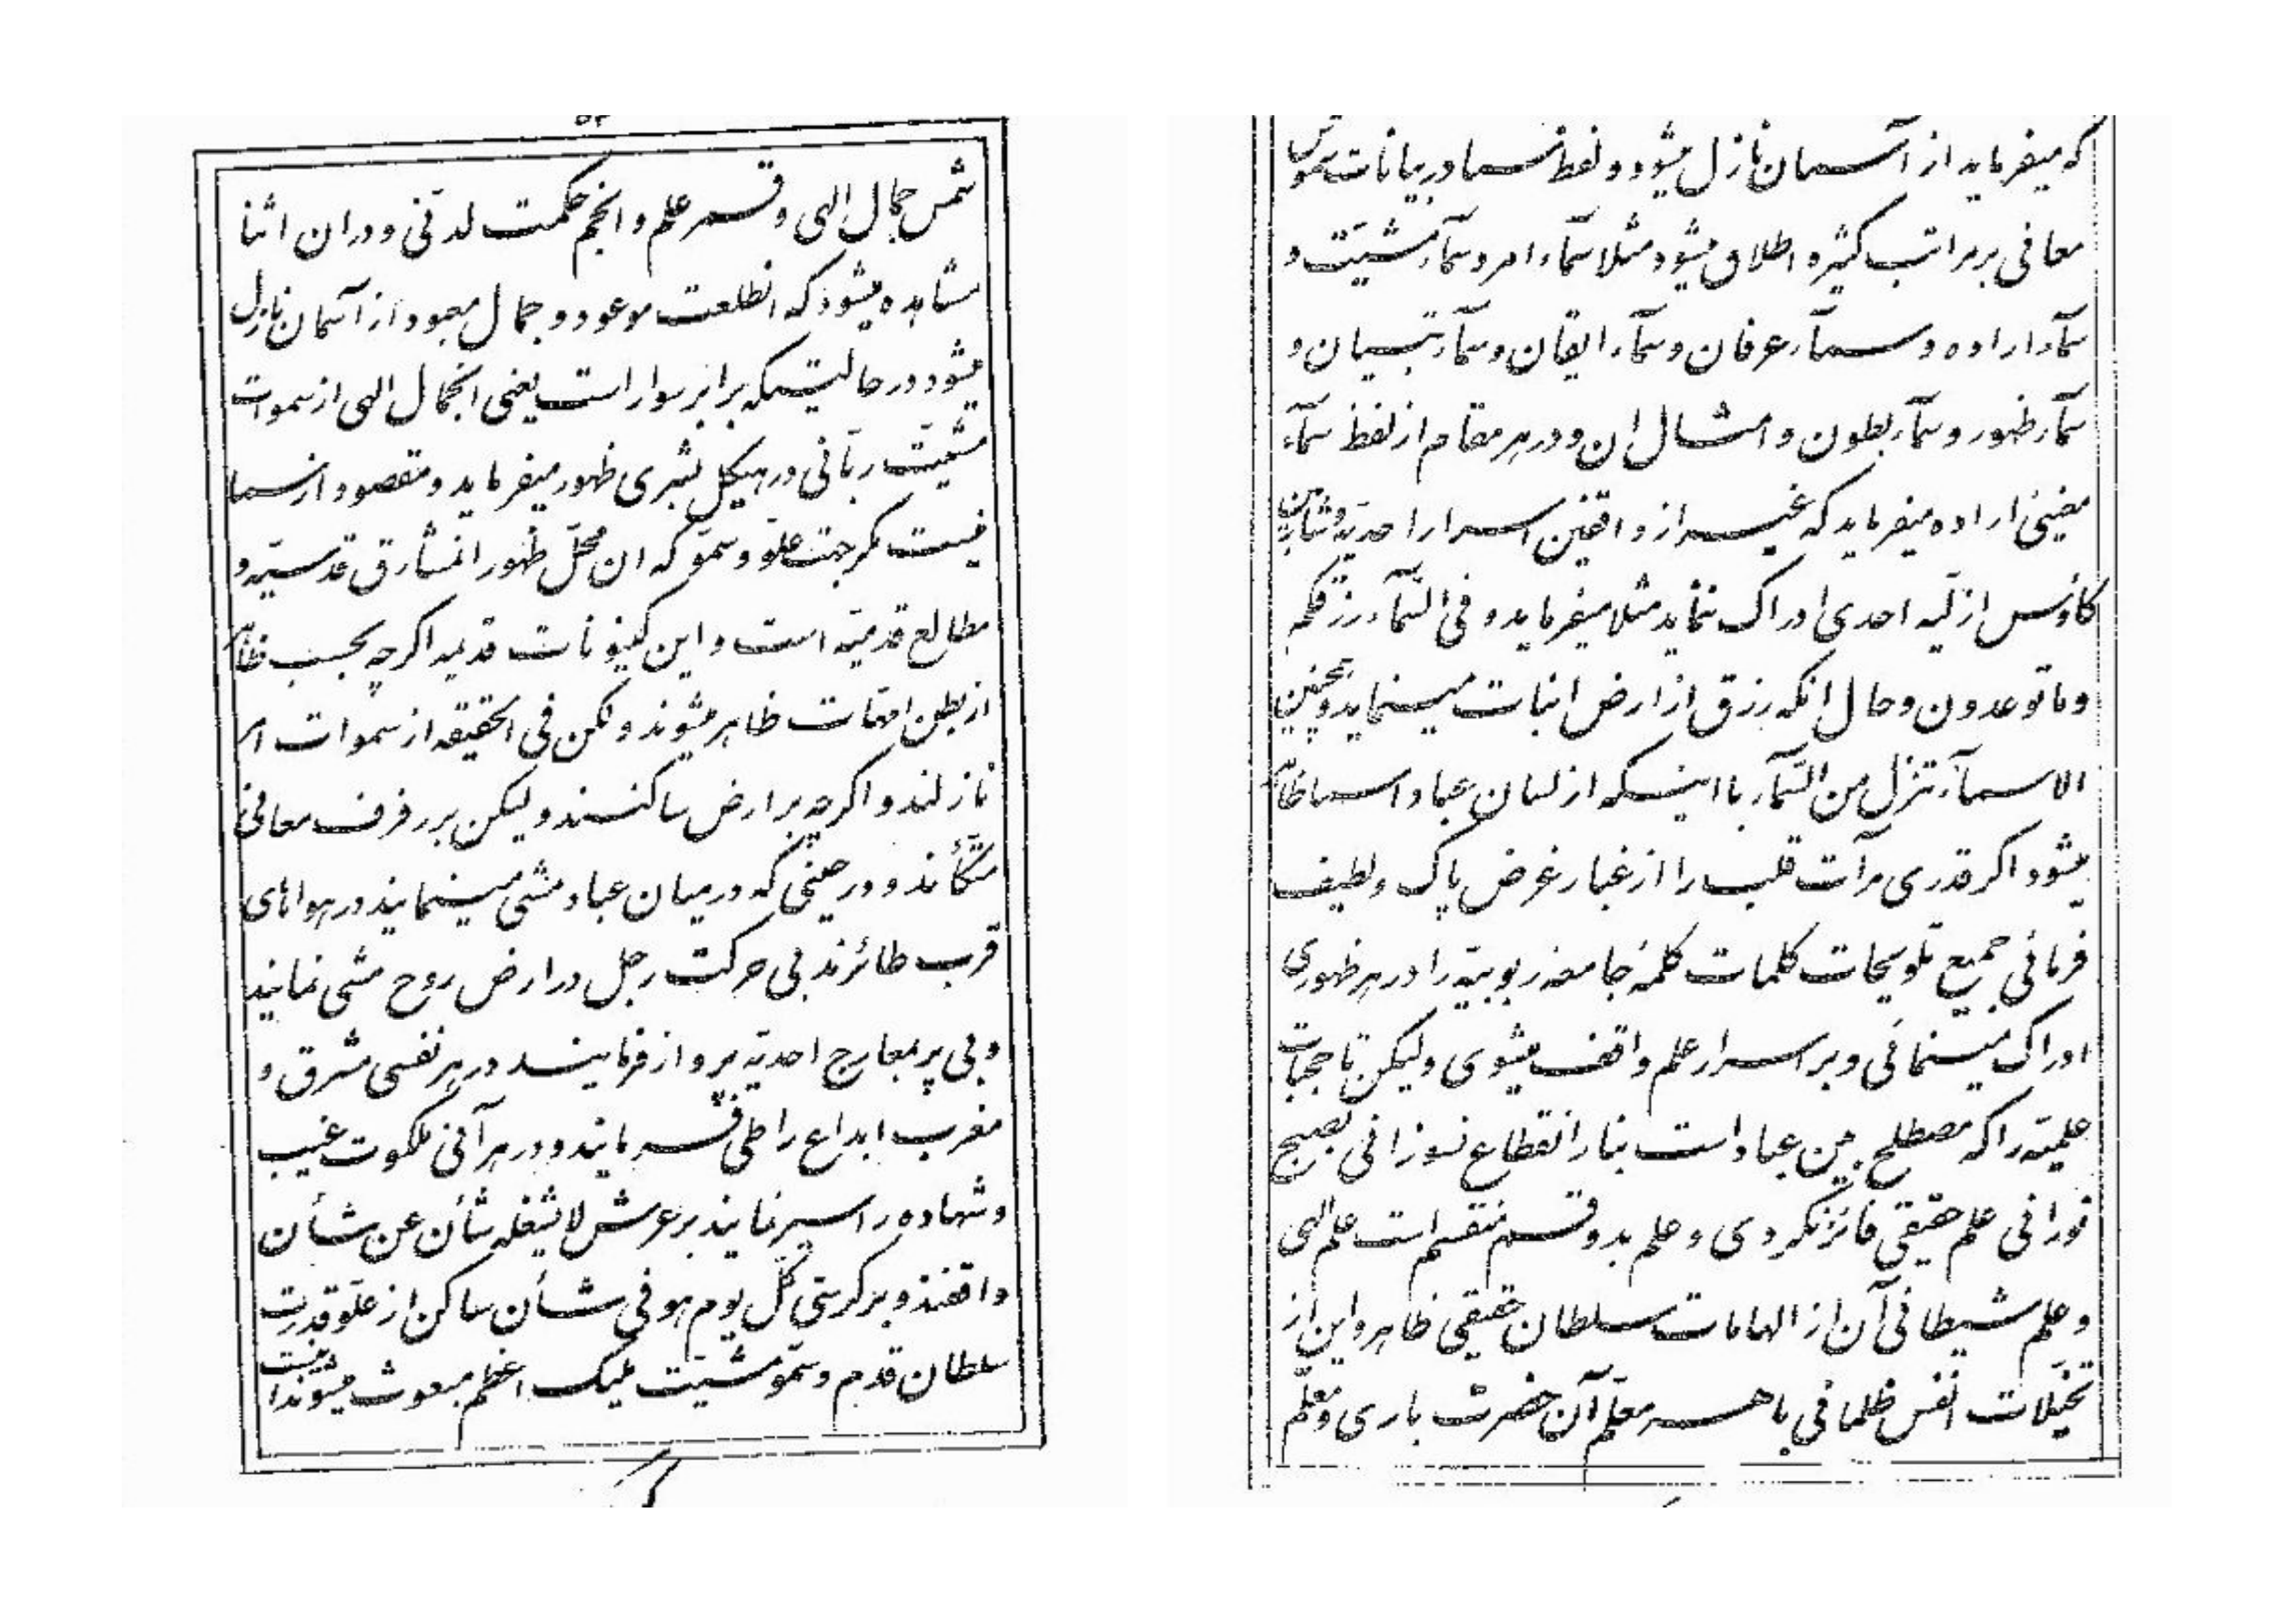 ۵۲
شمس جمال الهی و قمر علم و انجم حکمت لدنّی و دران اثنا
مشاهده میشود که انطلعت موعود و جمال معبود از آسمان نازل
میشود در حالتیکه برابر سوار است یعنی انجمال الهی از سموات
مشیّت ربّانی در هیکل بشری ظهور میفرماید و مقصود از سما
نیست مگر جهت علوّ و سموّ که ان محلّ ظهور انمشارق قدسیّه و
مطالع قدمیّه است و این کینونات قدیمه اگرچه بحسب ظاهر
از بطن امهّات ظاهر میشوند ولکن فی الحقیقه از سموات امر
نازلند و اگرچه بر ارض ساکنند ولیکن بر رفرف معانی
متّکأند و در حینی که در میان عباد مشی مینمایند در هواهای
قرب طائرند بی حرکت رجل در ارض روح مشی نمایند
و بی پر بمعارج احدیّه پرواز فرمایند در هر نفسی مشرق و
مغرب ابداع را طی فرمایند و در هر آنی ملکوت غیب
و شهاده را سیر نمایند بر عرش لا یشغله شأن عن شأن
واقفند و بر کرسی کلّ یوم هو فی شأن ساکن از علوّ قدرت
سلطان قدم و سموّ مشیّت ملیک اعظم مبعوث میشوند اینست
که میفرماید از آسمان نازل میشود و لفظ سما در بیانات شموس
معانی بر مراتب کثیره اطلاق میشود مثلا سمآء امر و سمآء مشیّت و
سمآء اراده و سمآء عرفان و سمآء ایقان و سمآء تبیان و
سمآء ظهور و سمآء بطون و امثال ان و در هر مقام از لفظ سمآء
معنیئ اراده میفرماید که غیر از واقفین اسرار احدیّه و شاربین
کاؤس ازلیّه احدی ادراک ننماید مثلا میفرماید و فی السّمآء رزقکم
و ما توعدون و حال انکه رزق از ارض انبات مینماید و همچنین
الاسمآء تنزل من السّمآء با اینکه از لسان عباد اسما ظاهر
میشود اگر قدری مرآت قلب را از غبار غرض پاک و لطیف
فرمائی جمیع تلویحات کلمات کلمهٴ جامعهٴ ربوبیّه را در هر ظهوری
ادراک مینمائی و بر اسرار علم واقف میشوی ولیکن تا حجبات
علمیّه را که مصطلح بین عباد است بنار انقطاع نسوزانی بصبح
نورانی علم حقیقی فائز نگردی و علم بدو قسم منقسم است علم الهی
و علم شیطانی آن از الهامات سلطان حقیقی ظاهر و این از
تخیّلات انفس ظلمانی باهر معلّم آن حضرت باری و معلّم